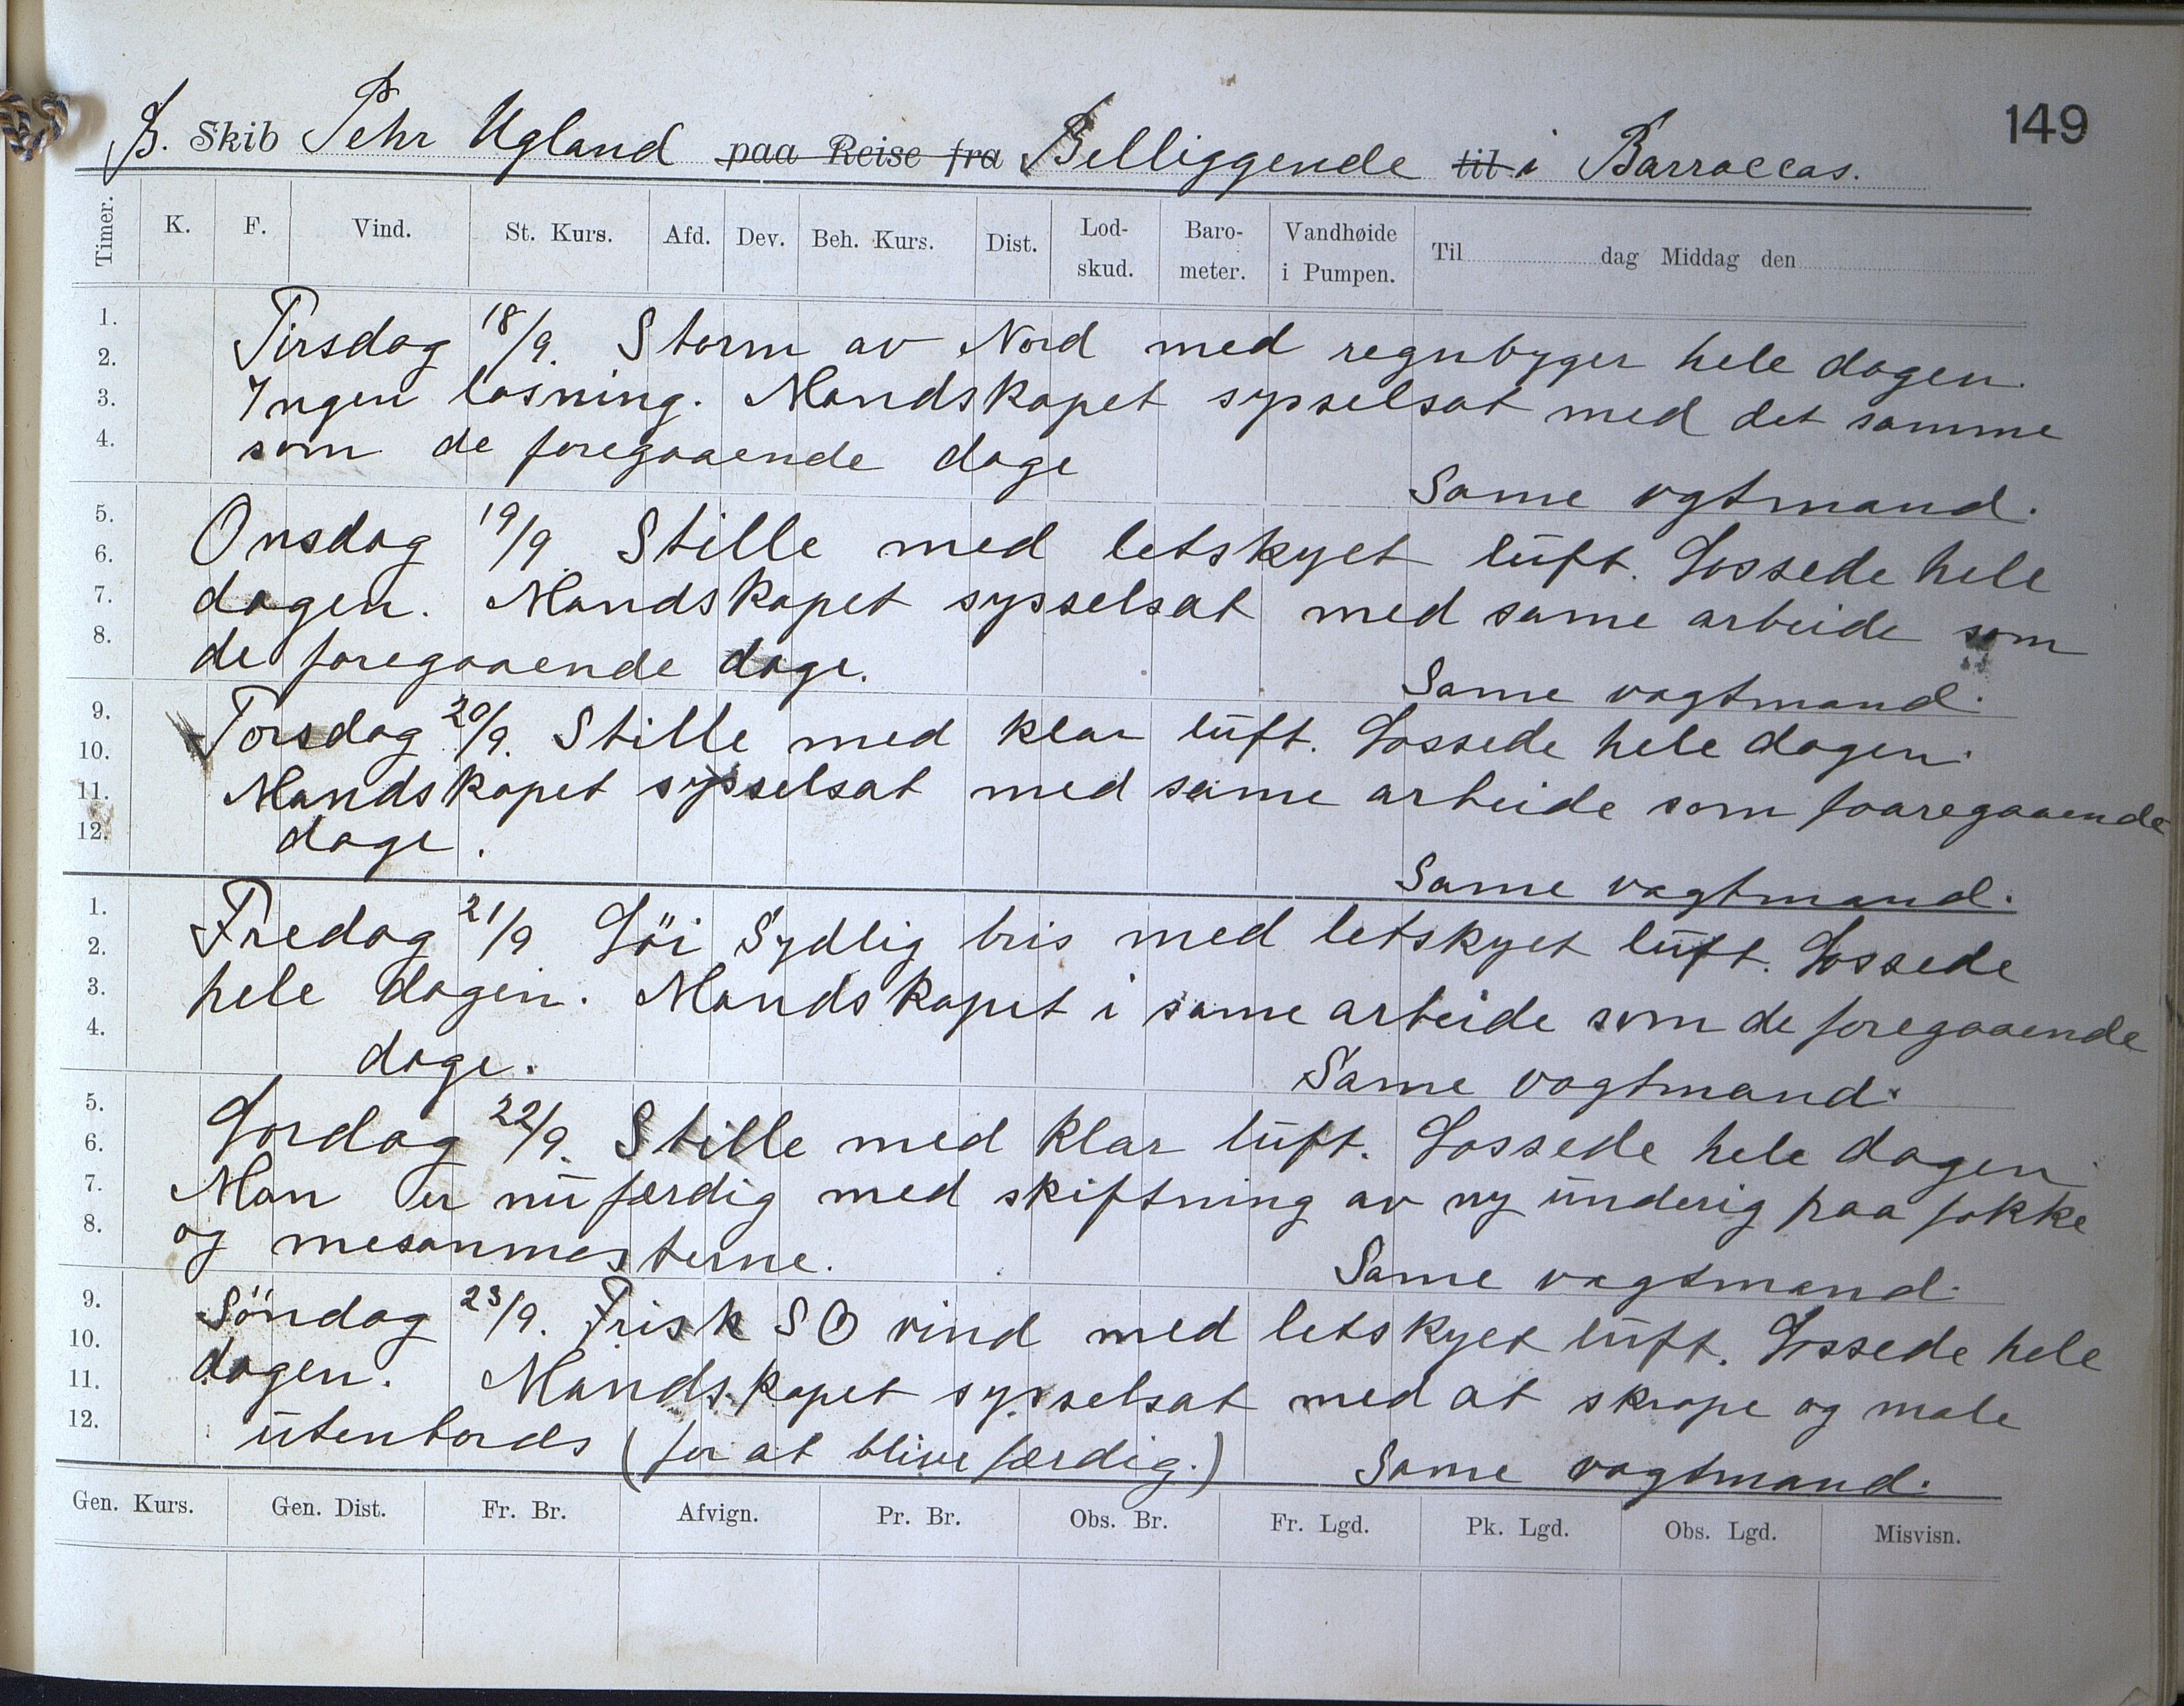 149
B. Skib Pehr Ugland paa Reise fra Belliggende til i Barraccas.
Timer. K. F. Vind. St. Kurs. Afd. Dev. Beh. Kurs. Dist. Lod-skud. Baro-meter. Vandhøide i Pumpen. Til dag Middag den
1. 2. 3. 4.
Tirsdag 18/9. Storm av Nord med regnbyger hele dagen.
Ingen losning. Mandskapet sysselsat med det samme
som de foregaaende dage
Same vgtmand.
5. 6. 7. 8.
Onsdag 19/9 Stille med letskyet luft. Lossede hele
dagen. Mandskapet sysselsat med same arbeide som
de foregaaende dage.
Same vagtmand.
9. 10. 11. 12.
Torsdag 20/9. Stille med klar luft. Lossede hele dagen.
Mandskapet sysselsat med same arbeide som foaregaaende
dage.
Same vagtmand.
1. 2. 3. 4.
Fredag 21/9 Löi Sydlig bris med letskyet luft. Lossede
hele dagen. Mandskapet i same arbeide som de foregaaende
dage.
Same vagtmand.
5. 6. 7. 8.
Lordag 22/9. Stille med klar luft. Lossede hele dagen
Man er nu færdig med skiftning av ny underig paa fokke
og mesanmasterne.
Same vagtmand.
9. 10. 11. 12.
Söndag 23/9. Frisk SO vind med letskyet luft. Lossede hele
dagen. Mandskapet sysselsat med at skrape og male
utenbords (for at blive færdig.)
Same vagtmand.
Gen. Kurs. Gen. Dist. Fr. Br. Afvign. Pr. Br. Obs. Br. Fr. Lgd. Pk. Lgd. Obs. Lgd. Misvisn.